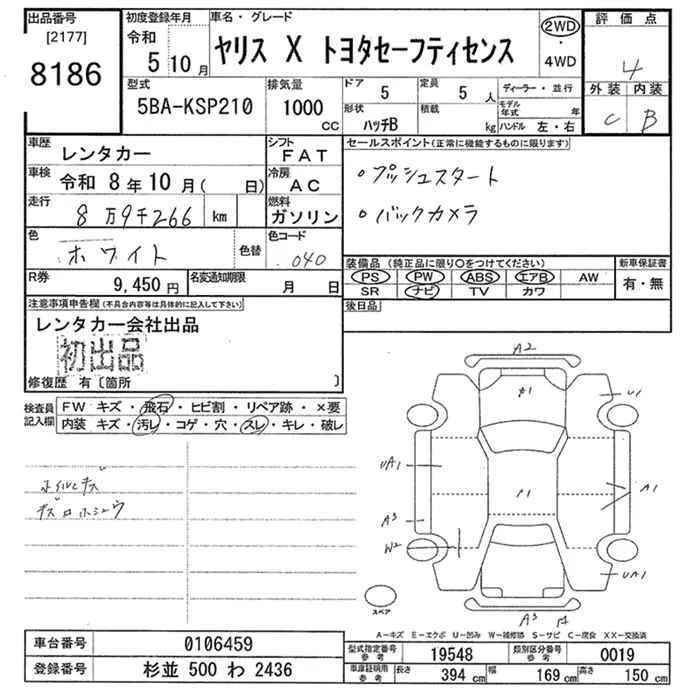 出品番号
[2177]
8186
初度登録年月
令和
5 10月
車名・グレード
ヤリス X トヨタセーフティセンス
2WD
・
4WD
評価点
4
外装 内装
C B
型式
5BA-KSP210
排気量
1000
CC
ドア 5
定員 5 人
形状
ハッチB
積載
kg
ディーラー・並行
モデル年式 年
ハンドル 左・右
車歴
レンタカー
シフト
FAT
車検 令和 8年10月( 日)
冷房
AC
走行 8万9千266 km
燃料
ガソリン
色 ホワイト
色替
色コード
040
R券 9,450円
名変通知期限 月 日
セールスポイント(正常に機能するものに限ります)
。プッシュスタート
。バックカメラ
装備品(純正品に限り○をつけてください)
PS PW ABS エアB AW
SR ナビ TV カワ
新車保証書
有・無
後日品
注意事項申告欄(不具合内容等は具体的に記入して下さい)
レンタカー会社出品
初出品
修復歴 有〔箇所 〕
検査員記入欄
FW キズ・飛石・ヒビ割・リペア跡・×要
内装 キズ・汚レ・コゲ・穴・スレ・キレ・破レ
ホイルキズ
キズロホシュウ
A2
A1
U1
UA1
A1
A1
A3
W2
UA1
A3
スペア
A-キズ E-エクボ U-凹み W-補修跡 S-サビ C-腐食 XX-交換済
車台番号 0106459
登録番号 杉並 500 わ 2436
型式指定番号
参考
19548
類別区分番号
参考
0019
車庫証明用
参考
長さ 394 cm
幅 169 cm
高さ 150 cm